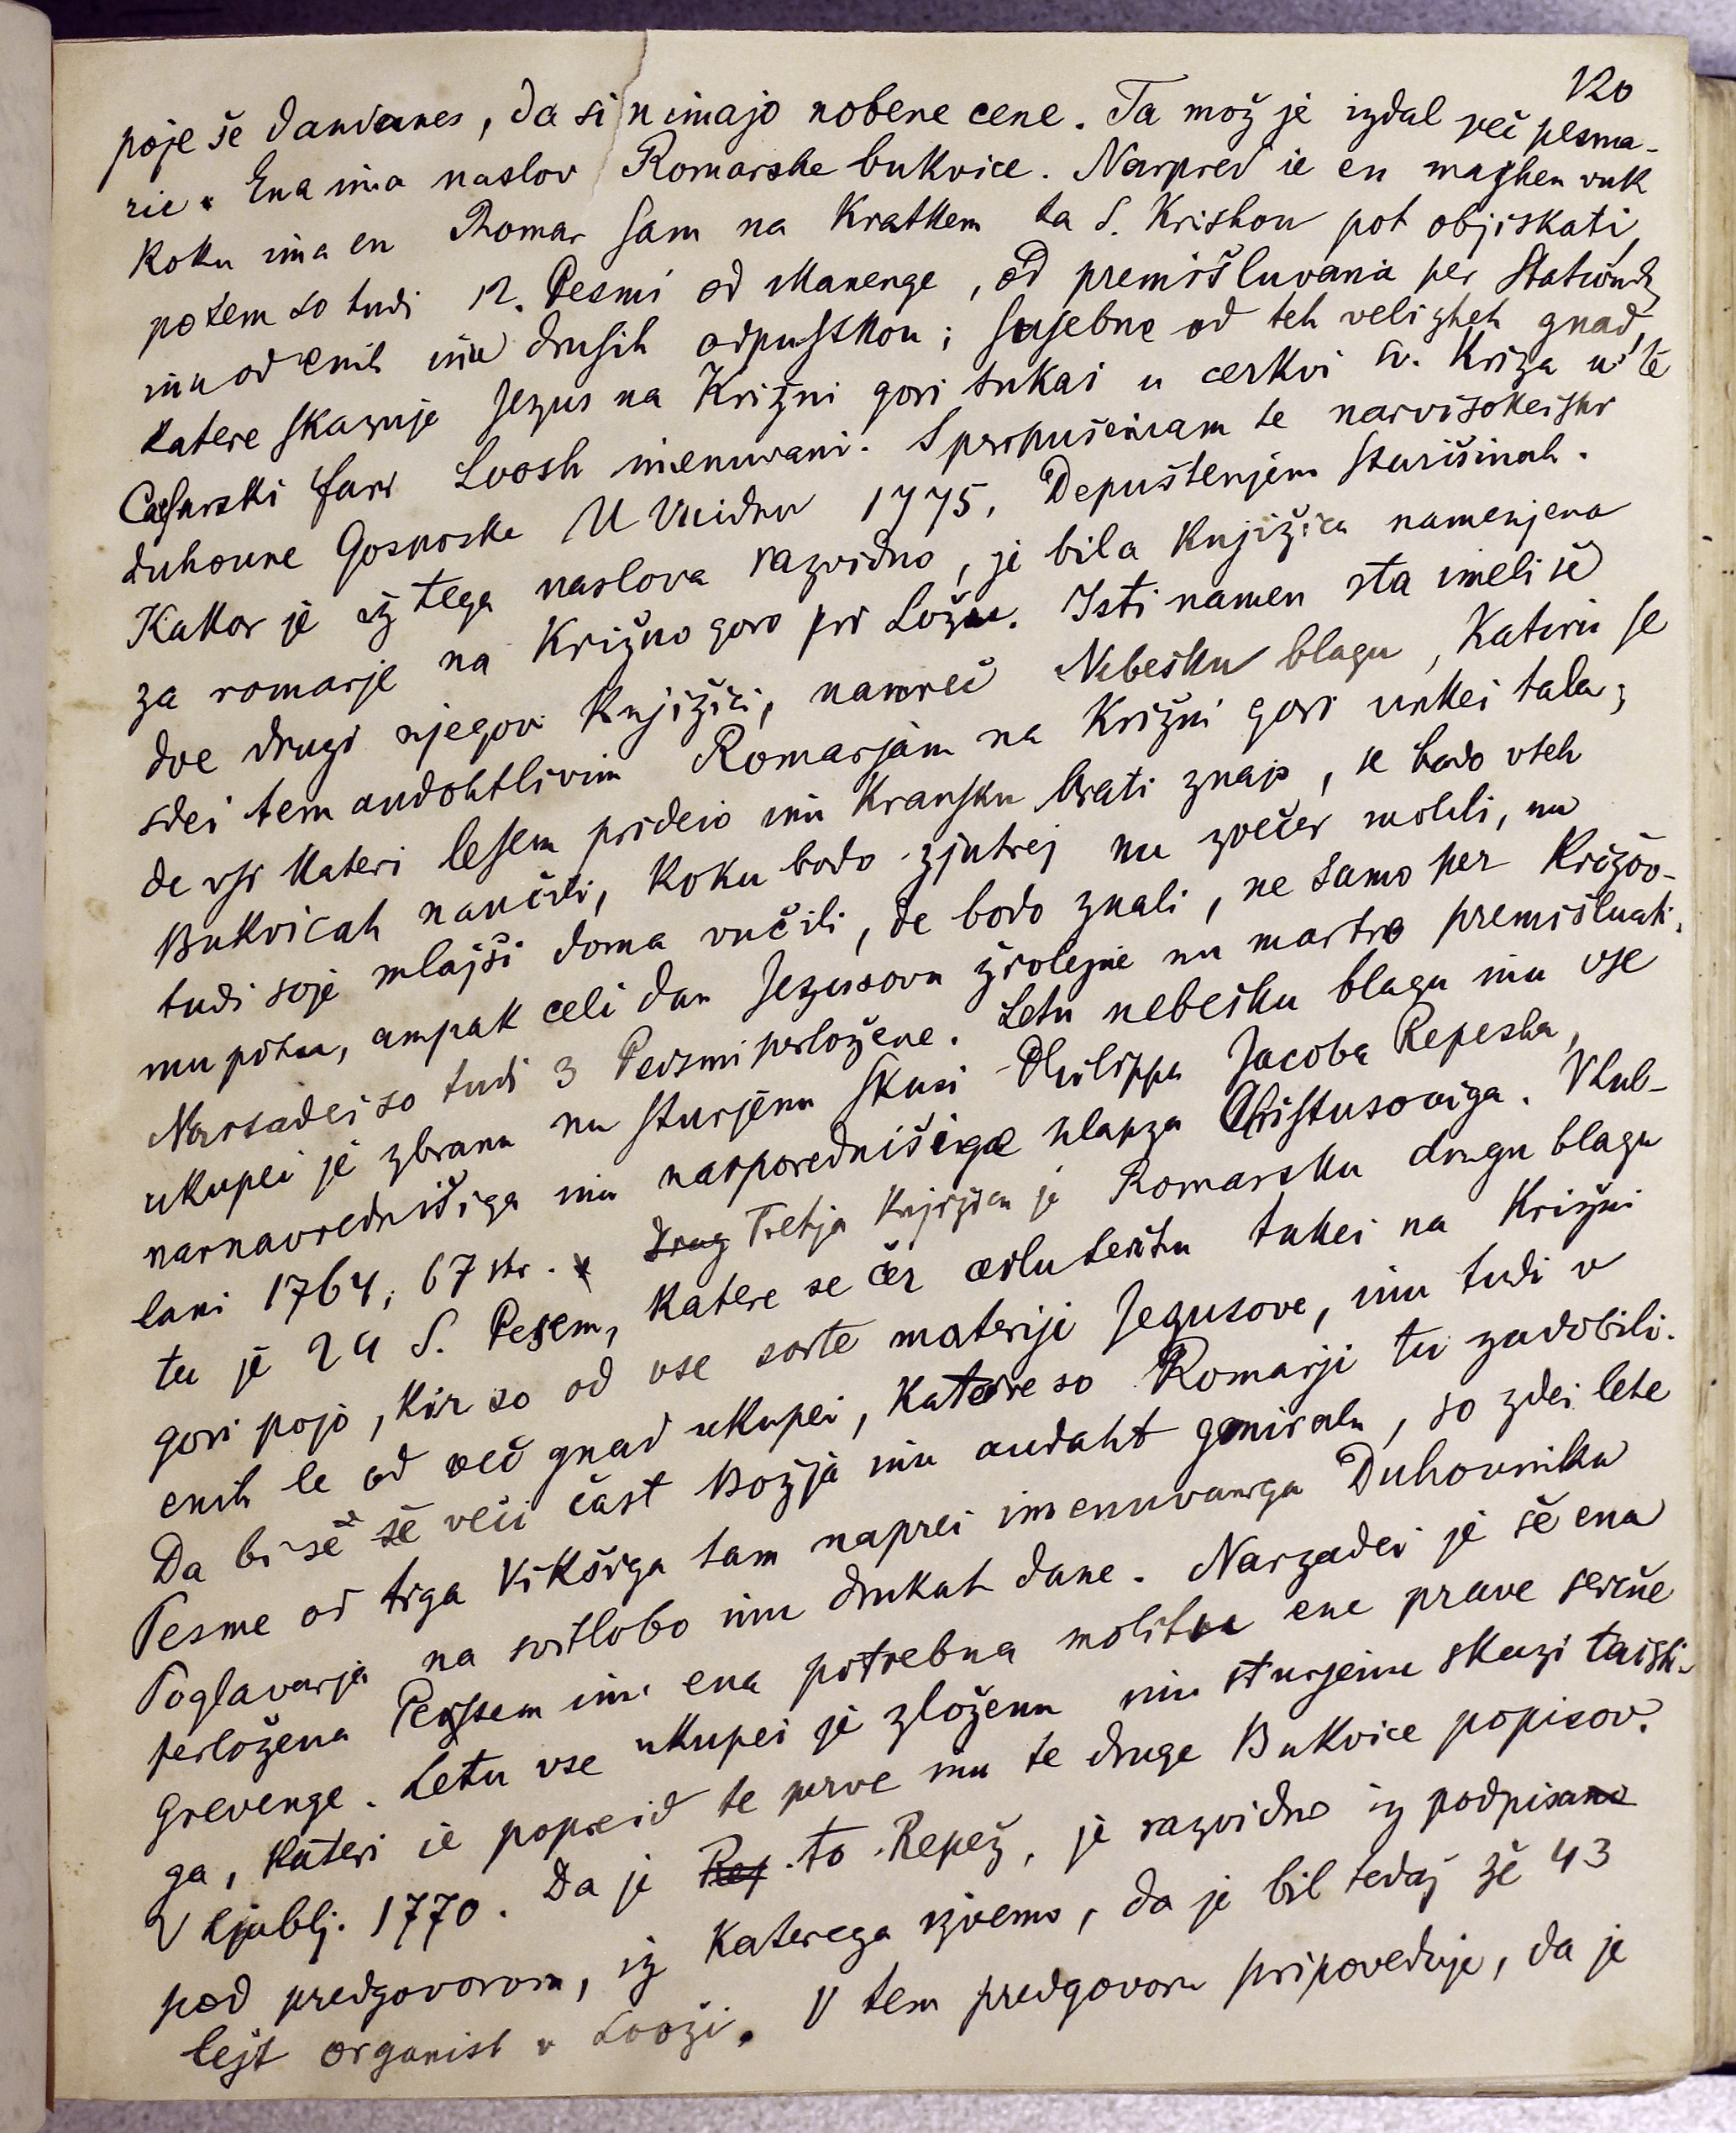 120
poje še dandanes, da si nimajo nobene cene. Ta mož je izdal več pesma-
ric. Ena ima naslov Romarske bukvice. Narpred ie en maghen vuk
koku ima en Romar sam na kratkem ta S. Krishou pot objiskati,
potem so tudi 12. Pesmi od Manenge, od premišluvania per
inu od enih inu drusih odpustkou; sosebne od teh velizheh gnad,
katere skazuje Jezus na Križni gori tukai u cerkvi sv. Križa u te
Casarski fari Loosh imenuvani. S perpušeniam te narvisokeishr
duhoune Gosposke U Vuidnu 1775. Depuštenjem starišinah.
Kakor je iz tega naslova razvidno, je bila knjižica namenjena
za romarje na Križno goro pri Ložu. Isti namen sta imeli še
dve drugi njegovi knjižici, namreč Nebešku blagu, kateru se
sdei tem andohtlivim Romarjam na Križni gori unkei tala;
de vsi kateri lesem prideio inu kransku brati znajo, se bodo vseh
Bukvicah naučili, koku bodo zjutrej nu zvečer molili, nu
tudi soje mlajši doma vučili, de bodo znali, ne samo per Križov-
mu potu, ampak celi dan Jezusovu žvolejne nu martro premišluati.
Narsadei so tudi 3 Peismi perložene. Letu nebešku blagu inu vse
ukupei je zbranu nu sturjenu skusi Philippa Jacoba Repesha,
narnavrednišiga inu narporednišiga hlapza Christusoviga. V Lub-
lani 1764, 67 str. Drug Tretja knjižica je Romarsku drugu blagu
tu je 24 S. Pesem, katere se čer tukei na Križni
gori pojo, kir so od vse sorte materije Jezusove, inu tudi v
enih le od več gnad ukupei, katere so Romarji tu zadobili.
Da bi se še veči čast Božja inu andaht gmirala, so zdei lete
Pesme od tiga Vikšiga tam naprei imenuvaniga Duhovnika
Poglavarja na svitlobo inu drukat dane. Narzadei je še ena
perložena Peissem inu ena potrebna molitva ene prave serčne
Grevenge. Letu vse ukupei je zloženu inu sturjenu skuzi taisti-
ga, kateri ie popreid te perve inu te druge Bukvice popisov.
V Ljublj. 1770. Da je Rep to Repež, je razvidno iz podpisano
pod predgovorom, iz katerega izvemo, da je bil tedaj že 43
lejt organist v Looži. V tem predgovoru pripoveduje, da je